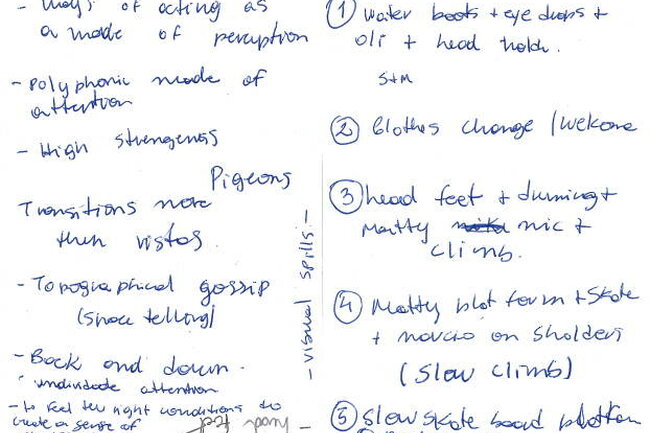 - ways of acting as
a mode of perception
- Polyphonic mode of
attention
- High strengeness
Pigeons
Transitions more
then vistas.
- Topographical gossip
(space telling)
- Back and down.
attention
- to feel the right conditions to
create a sense of
- visual spills -
① water boots + eye drops +
oli + head hold.
S+M
② Clothes change / Welcome
③ head feet + drumming +
Matty mic +
climb.
④ Matty platform + Skate
+ marcio on sholders
(Slow climb)
⑤ Slow skate board